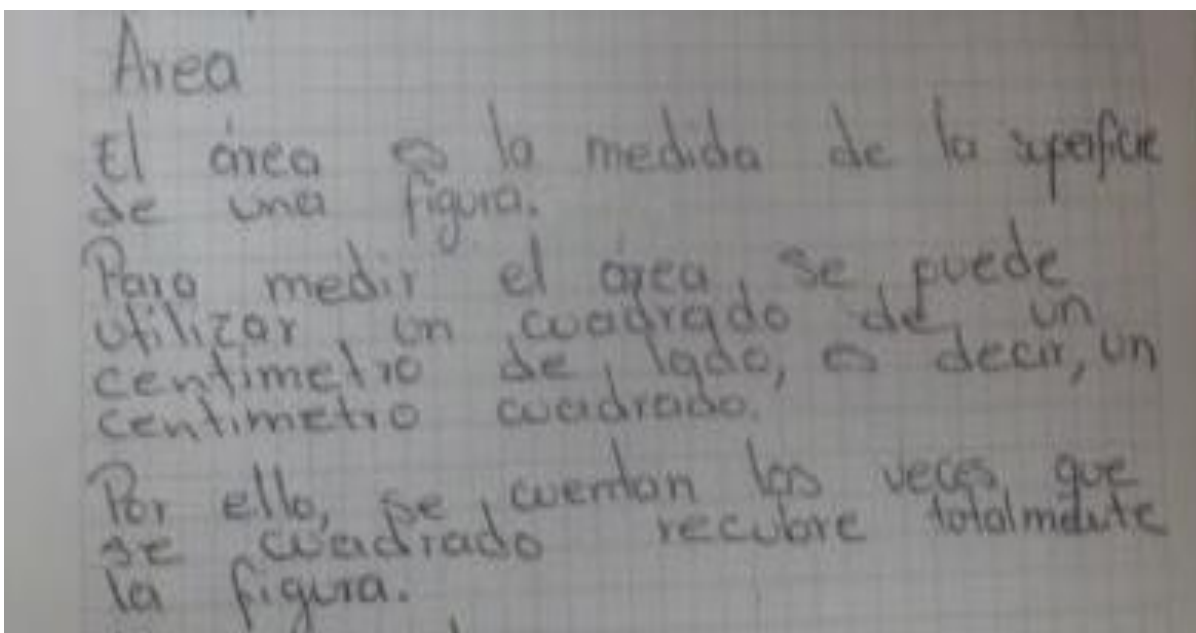 Area
El área es la medida de la superficie
de una figura.
Para medir el área, se puede
utilizar un cuadrado de un
centimetro de lado, es decir, un
centimetro cuadrado.
Por ello, se cuentan las veces que
se cuadrado recubre totalmente
la figura.